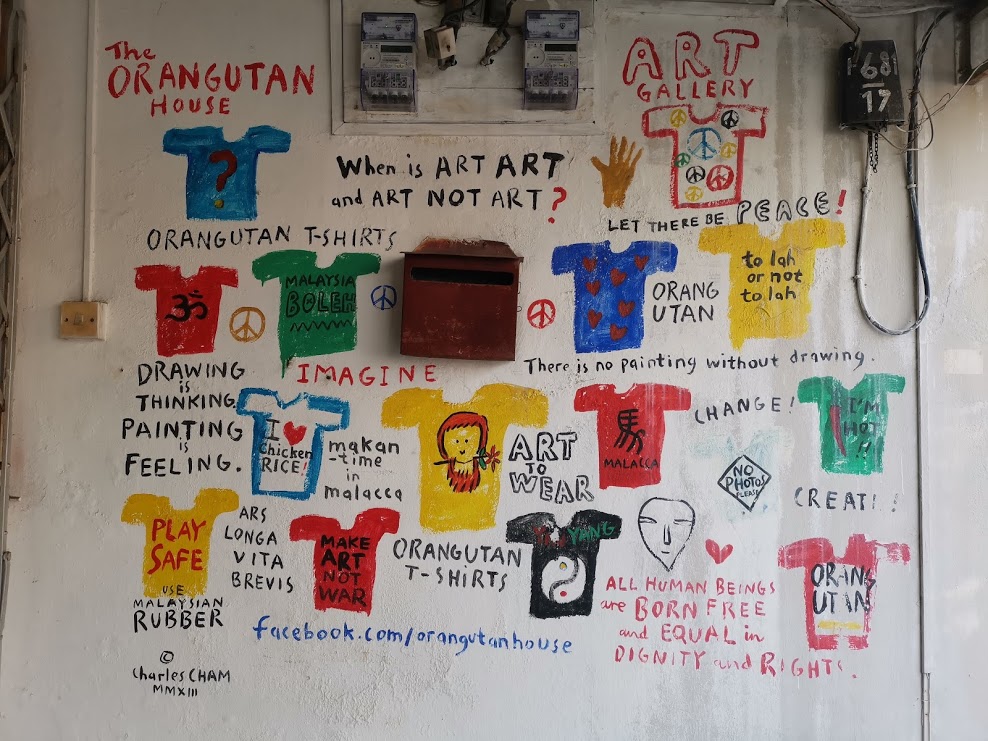 The
ORANGUTAN
HOUSE
ART
GALLERY
681
17
?
When is ART ART
and ART NOT ART?
LET THERE BE PEACE!
ORANGUTAN T-SHIRTS
ॐ
MALAYSIA
BOLEH
ORANG
UTAN
to lah
or not
to lah
There is no painting without drawing.
IMAGINE
DRAWING
is
THINKING.
PAINTING
is
FEELING.
I
Chicken
RICE!
makan
-time
in
malacca
ART
TO
WEAR
馬
MALACCA
CHANGE!
NO
PHOTOS
PLEASE
I'M
HOT
!!
PLAY
SAFE
USE
MALAYSIAN
RUBBER
ARS
LONGA
VITA
BREVIS
MAKE
ART
NOT
WAR
ORANGUTAN
T-SHIRTS
YANG
ALL HUMAN BEINGS
are BORN FREE
and EQUAL in
DIGNITY and RIGHTS.
ORANG
UTAN
facebook.com/orangutanhouse
©
Charles CHAM
MMXIII